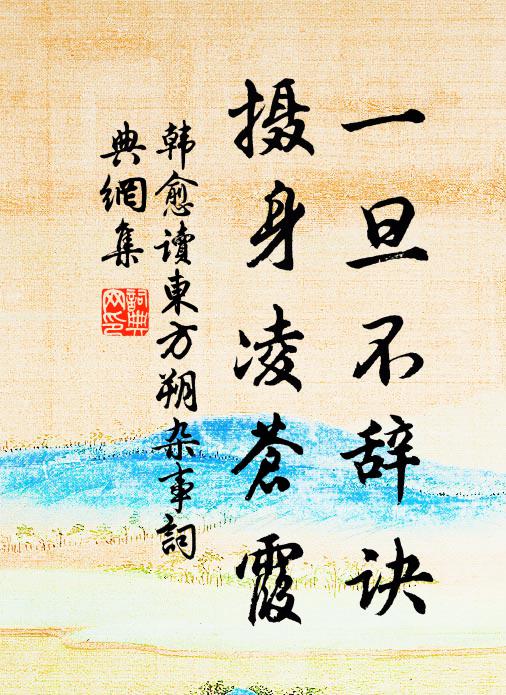 一旦不辞诀
摄身凌苍霞
韩愈读東方朔杂事詞
典網集
詞典
网印